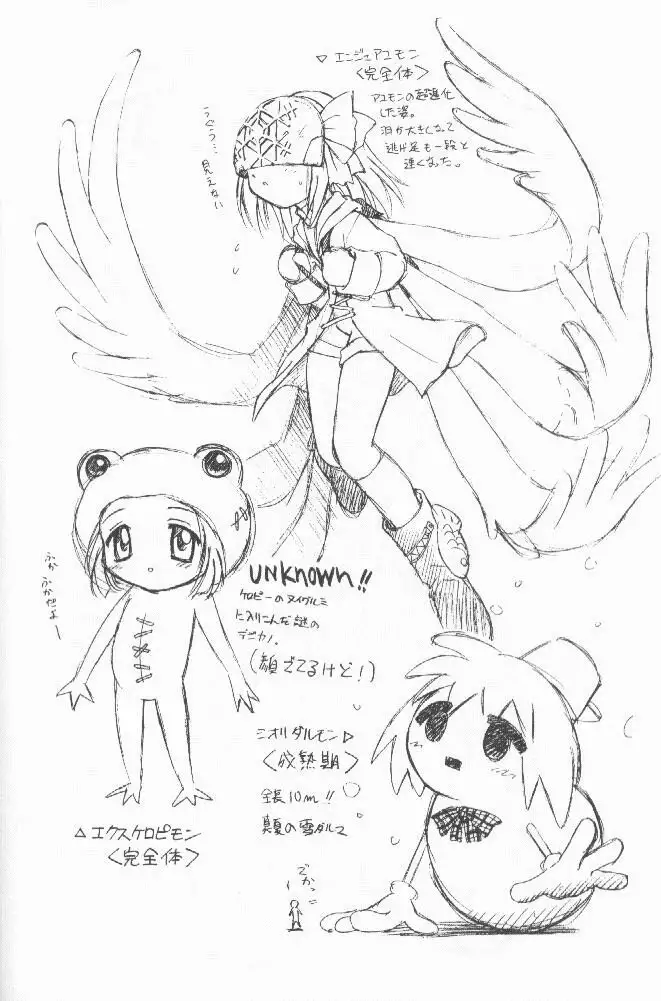 ▽エンジェアユモン
〈完全体〉
アユモンの超進化
した姿。
羽が大きくなって
逃げ足も一段と
速くなった。
うぐぅ…見えない
UNKNOWN!!
ケロピーのヌイグルミ
に入りこんだ謎の
デジカノ。
(顔でてるけど!)
ミオリダルモン▷
〈成熟期〉
全長10m!!
真夏の雪ダルマ
△エクスケロピモン
〈完全体〉
でかっ